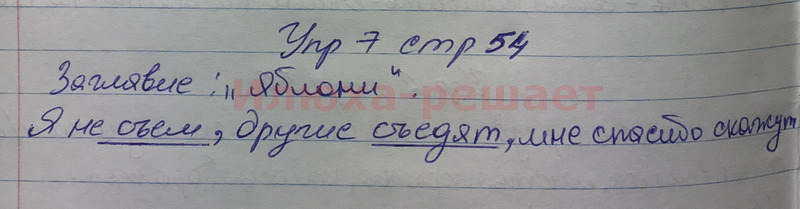 Упр 7 стр 54
Заглавие: „Яблони“.
Илюха-решает
Я не съем, другие съедят, мне спасибо скажут